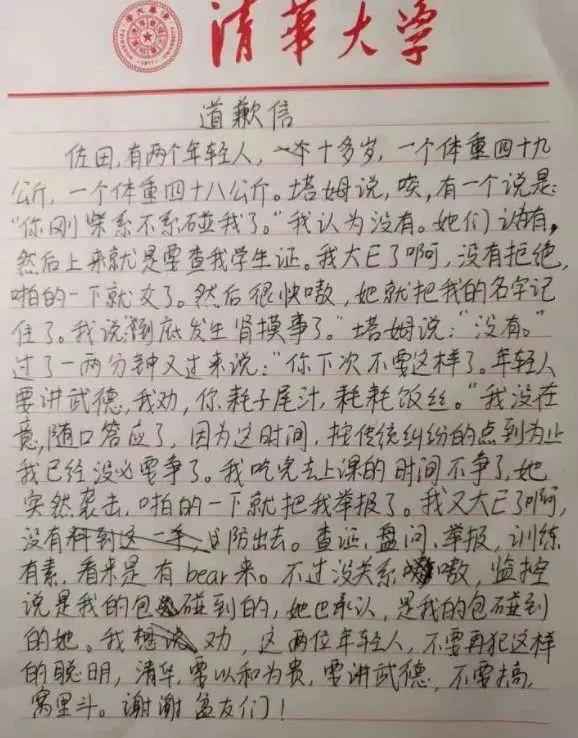 清華大学
道歉信
佐田,有两个年轻人,一个十多岁,一个体重四十九
公斤,一个体重四十八公斤。塔姆说,唉,有一个说是:
“你刚柴系不系碰我了。”我认为没有。她们说有,
然后上来就是要查我学生证。我大E了啊,没有拒绝,
啪的一下就交了。然后很快嗷,她就把我的名字记
住了。我说“到底发生肾摸事了。”塔姆说:“没有。”
过了一两分钟又过来说:“你下次不要这样了。年轻人
要讲武德,我劝,你耗子尾汁,耗耗饭丝。”我没在
意,随口答应了,因为这时间,按传统纠纷的点到为止
我已经没必要争了。我吃完去上课的时间不争了,她
突然袭击,啪的一下就把我举报了。我又大E了啊,
没有料到这一手,防出去。查证,盘问,举报,训练
有素,看来是有bear来。不过没关系嗷,监控
说是我的包碰到的,她也承认,是我的包碰到
的她。我想说劝,这两位年轻人,不要再犯这样
的聪明,清华,要以和为贵,要讲武德,不要搞
窝里斗。谢谢盆友们!